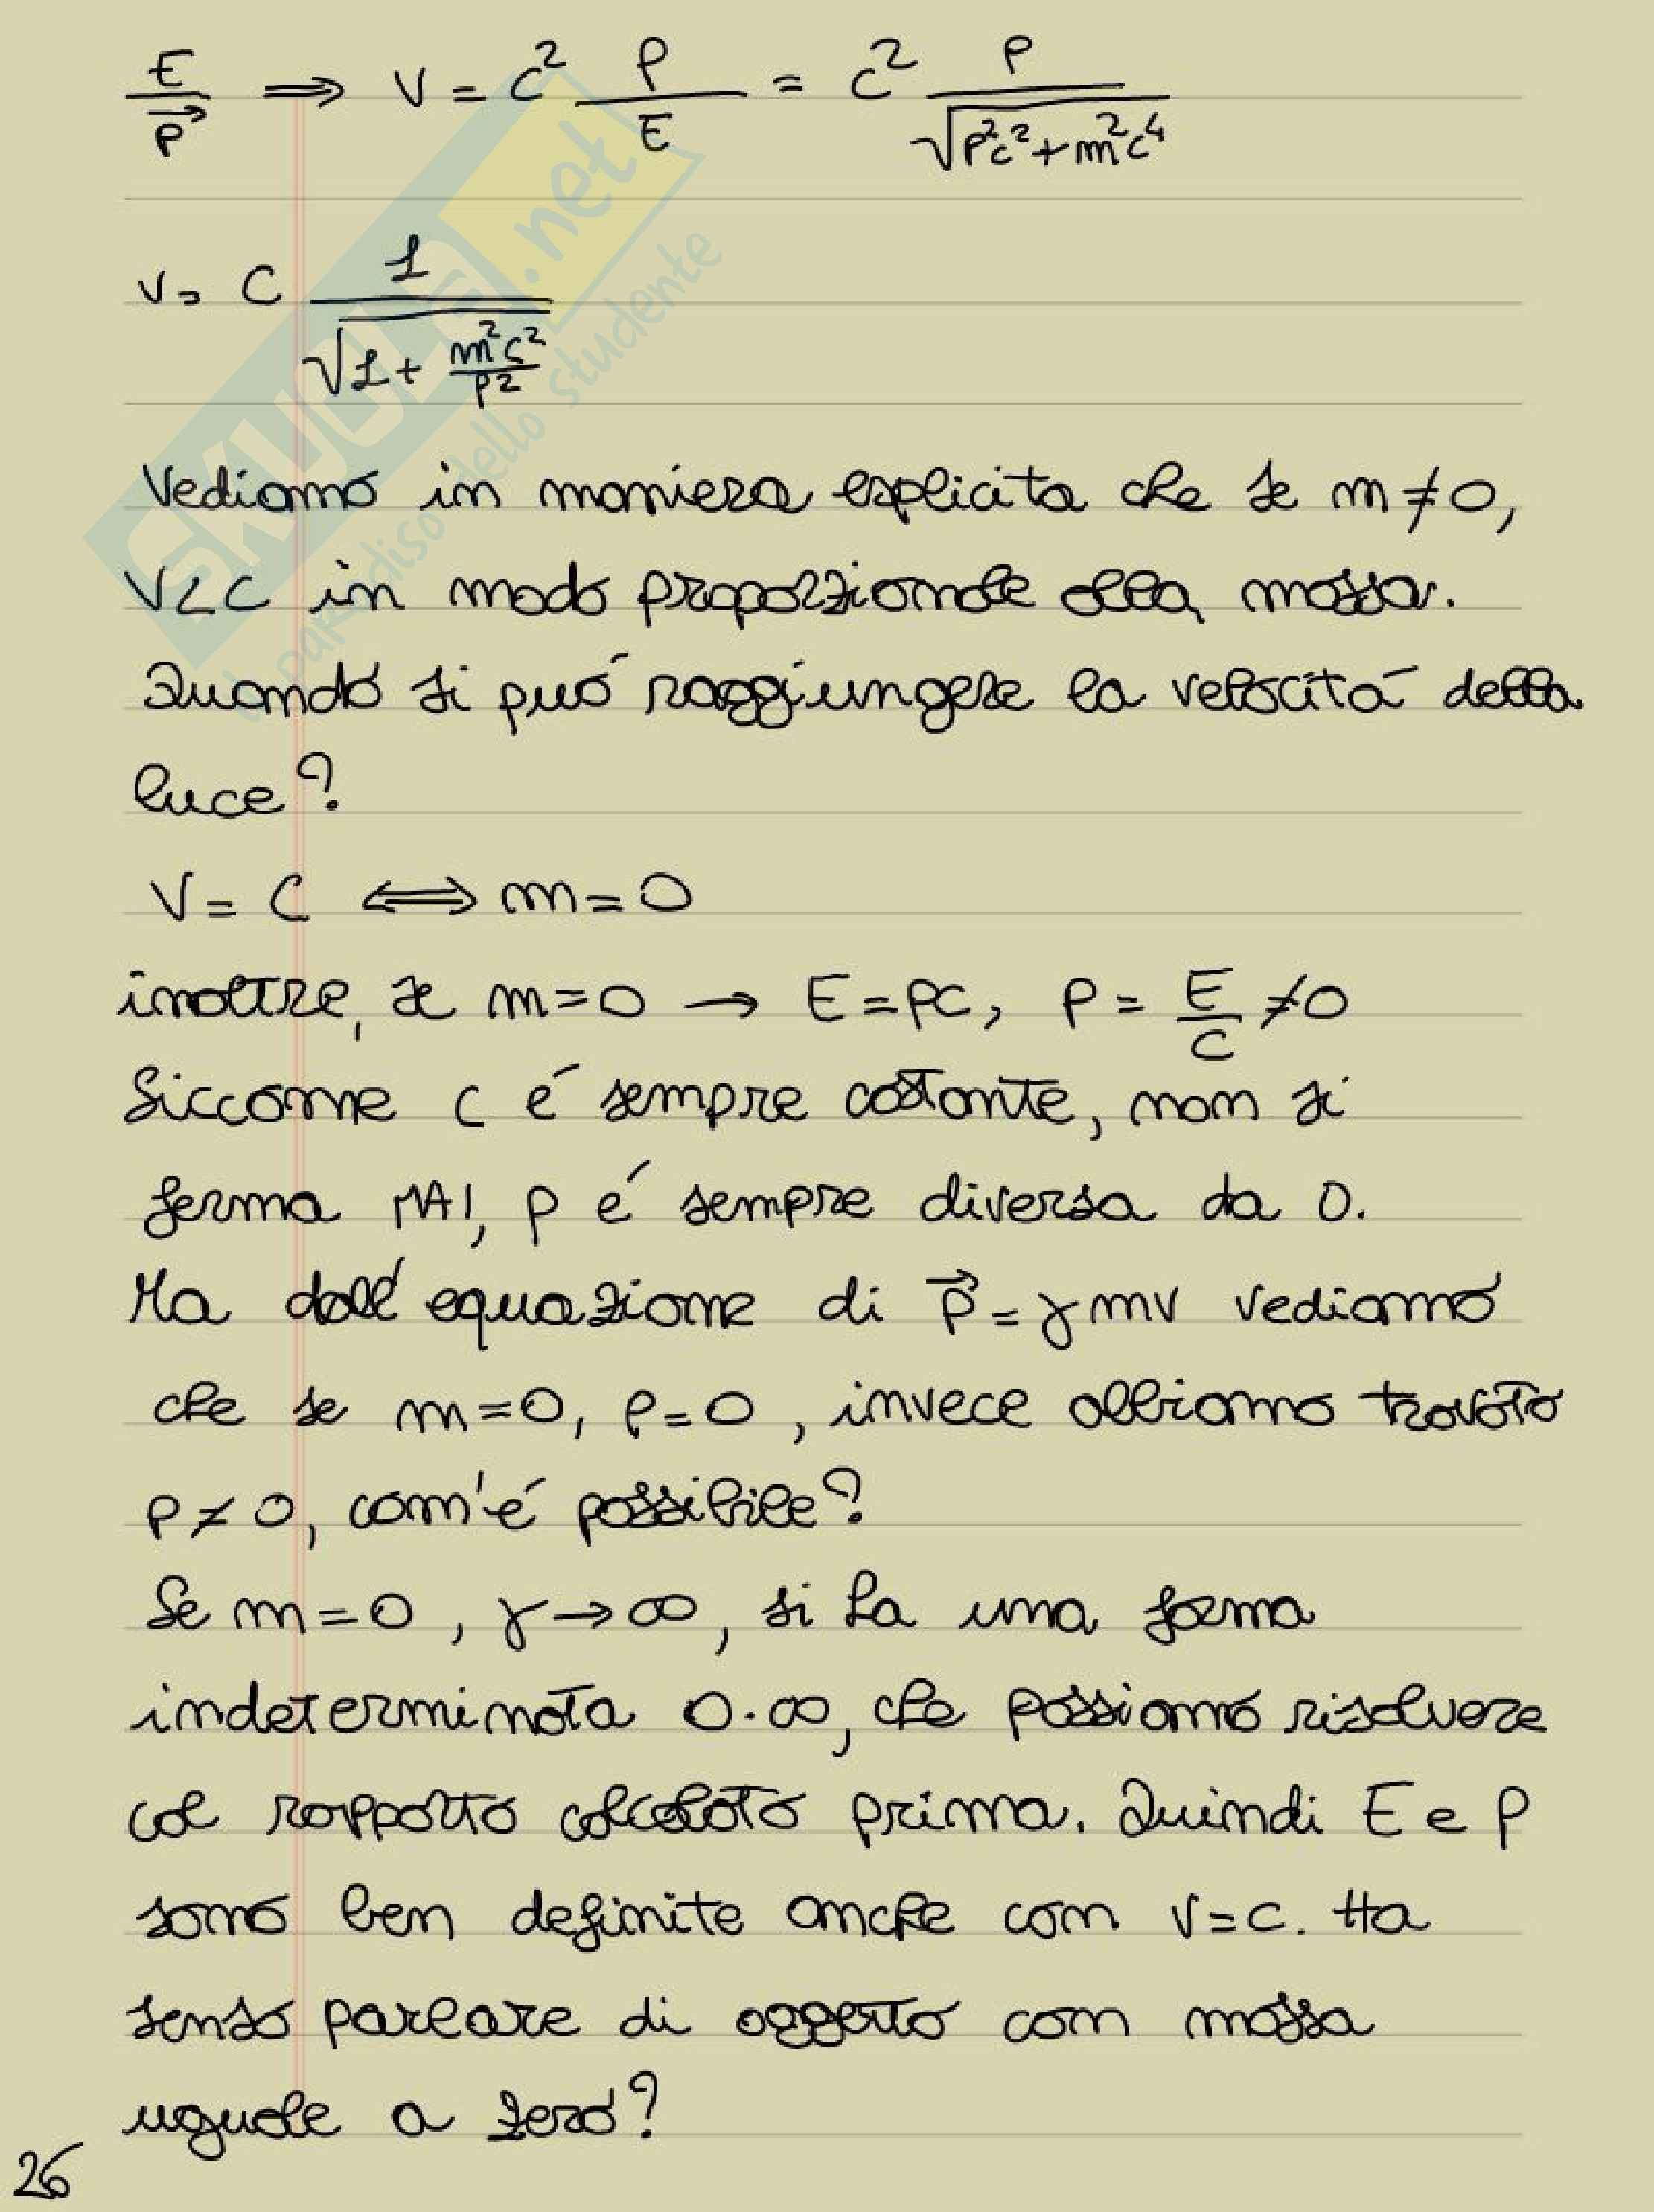 E/p⃗ ⟹ v = c² p/E = c² p/√(p²c²+m²c⁴)
v = c 1/√(1+ m²c²/p²)
Vediamo in maniera esplicita che se m≠0,
v<c in modo proporzionale alla massa.
Quando si può raggiungere la velocità della
luce?
v = c ⟺ m=0
inoltre, se m=0 → E=pc, p = E/c ≠0
Siccome c é sempre costante, non si
ferma MAI, p é sempre diversa da 0.
Ma dall'equazione di p⃗ = γmv vediamo
che se m=0, p=0, invece abbiamo trovato
p≠0, com'é possibile?
Se m=0, γ→∞, si ha una forma
indeterminata 0·∞, che possiamo risolvere
col rapporto calcolato prima. Quindi E e p
sono ben definite anche con v=c. Ha
senso parlare di oggetto con massa
uguale a zero?
26
SKUOLA.net
il paradiso dello studente